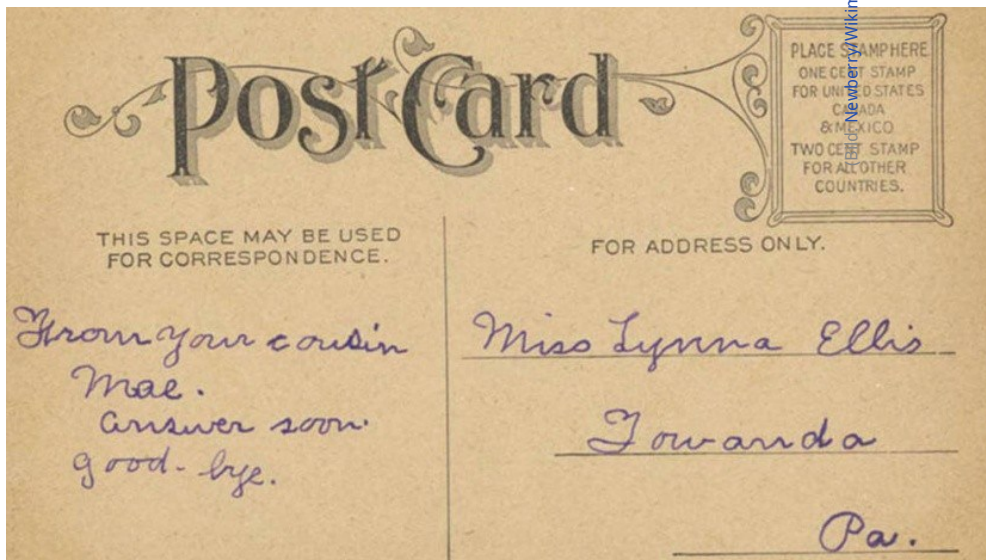 Post Card
PLACE STAMP HERE
ONE CENT STAMP
FOR UNITED STATES
CANADA
& MEXICO
TWO CENT STAMP
FOR ALL OTHER
COUNTRIES.
(Bild: Newberry/Wikim
THIS SPACE MAY BE USED
FOR CORRESPONDENCE.
From your cousin
Mae.
answer soon.
good-bye.
FOR ADDRESS ONLY.
Miss Lynna Ellis
Towanda
Pa.